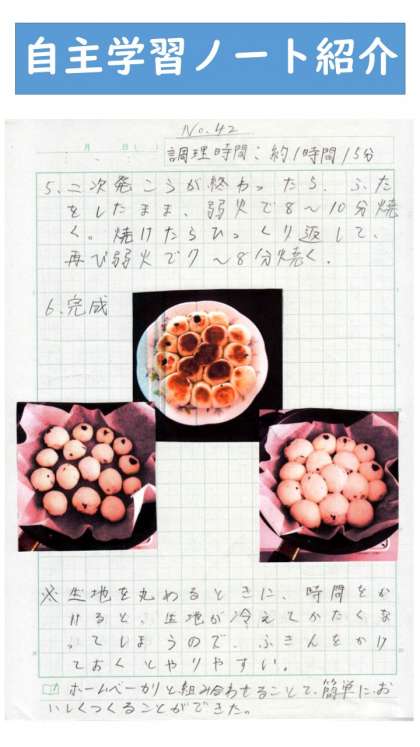 自主学習ノート紹介
No.42
月 日( )
調理時間：約1時間15分
5.二次発こうが終わったら、ふた
をしたまま、弱火で8〜10分焼
く。焼けたらひっくり返して、
再び弱火で7〜8分焼く。
6.完成
※生地を丸めるときに、時間をか
けると、生地が冷えてかたくな
ってしまうので、ふきんをかけ
ておくとやりやすい。
ホームベーカリと組み合わせることで、簡単にお
いしくつくることができた。